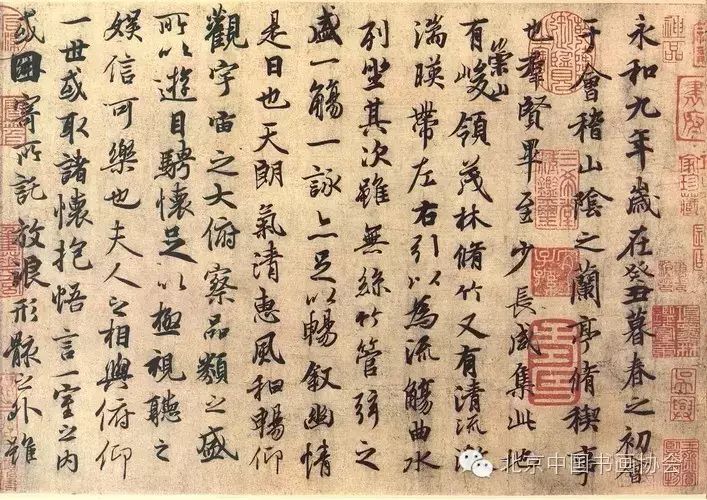 永和九年歲在癸丑暮春之初會
于會稽山陰之蘭亭脩禊事
也羣賢畢至少長咸集此地
有崇山峻領茂林脩竹又有清流激
湍暎帶左右引以為流觴曲水
列坐其次雖無絲竹管弦之
盛一觴一詠亦足以暢敘幽情
是日也天朗氣清惠風和暢仰
觀宇宙之大俯察品類之盛
所以遊目騁懷足以極視聽之
娛信可樂也夫人之相與俯仰
一世或取諸懷抱悟言一室之内
或因寄所託放浪形骸之外雖
北京中国书画协会